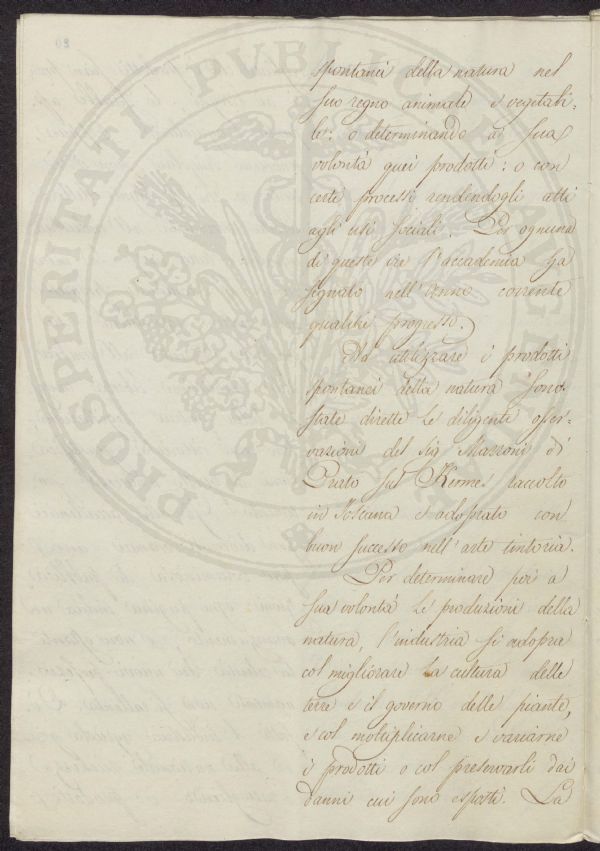 spontanei della natura nel
suo regno animale e vegetabi-
le: o determinando a sua
volontà quei prodotti: o con
certi processi rendendogli atti
agli usi sociali. Per ognuna
di queste vie l'accademia ha
segnato nell'Anno corrente
qualche progresso.
Ad utilizzare i prodotti
spontanei della natura sono
state dirette le diligenti osser-
vazioni del Sig. Mazzoni di
Prato sul Kermes raccolto
in Toscana e adoprato con
buon successo nell'arte tintoria.
Per determinare poi a
sua volontà le produzioni della
natura, l'industria si adopra
col migliorare la cultura delle
terre e il governo delle piante,
e col moltiplicarne e variarne
i prodotti o col preservarli dai
danni cui sono esposti. La
PROSPERITATI PVBLICAE AVGENDAE